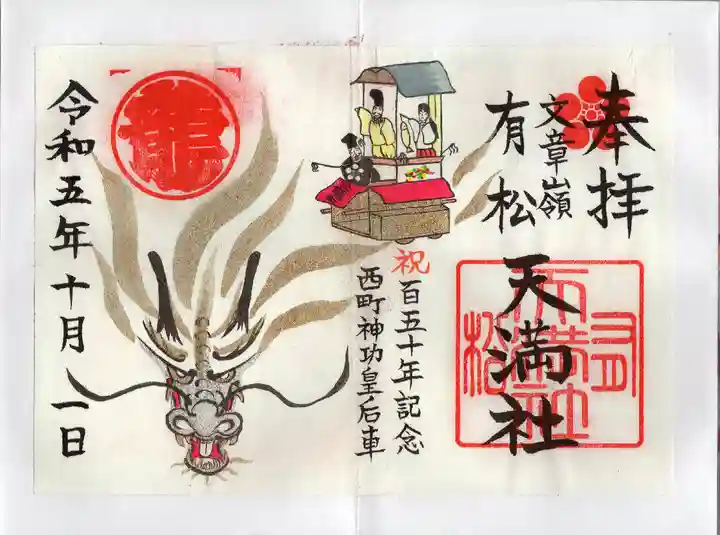 奉拝
文章嶺
有松
天満社
有松天満社
祝
百五十年記念
西町神功皇后車
龍
令和五年十月一日